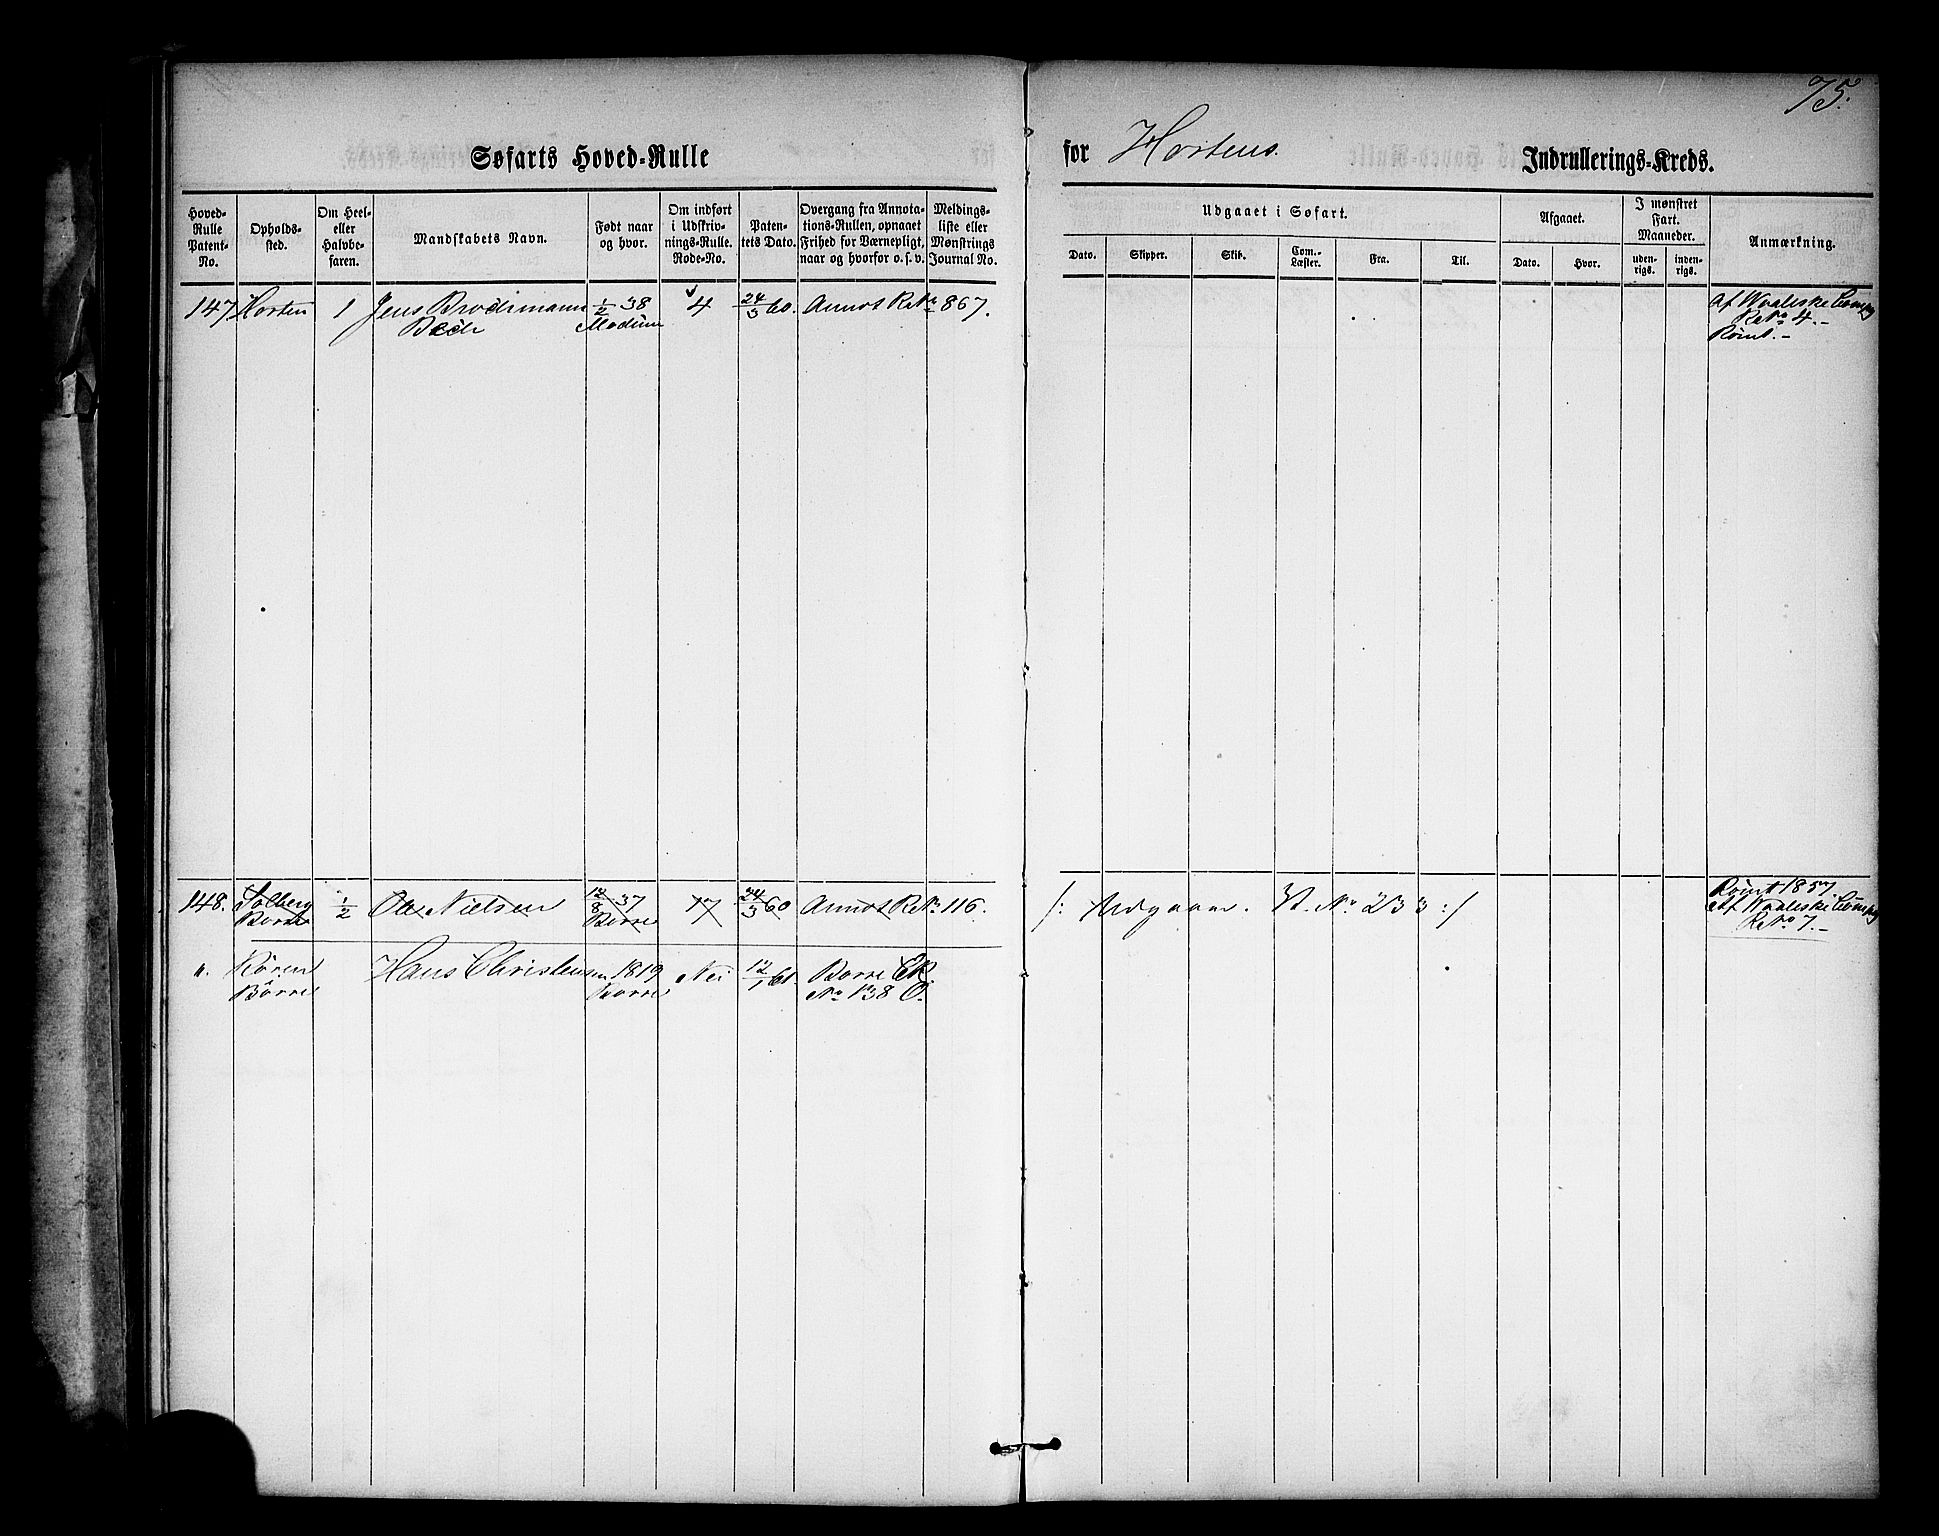 75.
Søfarts Hoved-Rulle for Hortens Indrullerings-Kreds.
Hoved-Rulle Patent-No.
Opholds-sted.
Om Heel- eller Halvbe-faren.
Mandskabets Navn.
Født naar og hvor.
Om indført i Udskriv-nings-Rulle. Rode-No.
Paten-tets Dato.
Overgang fra Annota-tions-Rullen, opnaaet Frihed for Værnepligt, naar og hvorfor o. s. v.
Meldings-liste eller Mønstrings Journal No.
Udgaaet i Søfart.
Dato. Skipper. Skib. Com.-Læster. Fra. Til.
Afgaaet.
Dato. Hvor.
I mønstret Fart. Maaneder.
uden-rigs. inden-rigs.
Anmærkning.
147 Horten 1 Jens 1/2 38 4 24/3 60. Annot R No 867. af Waaleske Comp
Bech Modum R No 4.-
Rømt.-
148. Solberg 1/2 Ole Nielsen 12/8 37 17 24/3 60 Annot R No 116. /: Udgaaer. No 233 :/ Rømt 1857.
Borre Borre Af Waaleske Comp
R No 7.-
". Røren Hans Christensen 1819 Nei 12/1 61. Borre
Borre Borre No 138